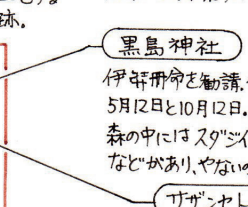 跡.
黒島神社
伊弉冊命を勧請.
5月12日と10月12日.
森の中にはスダジイ
などがあり、やないの
サザンセト